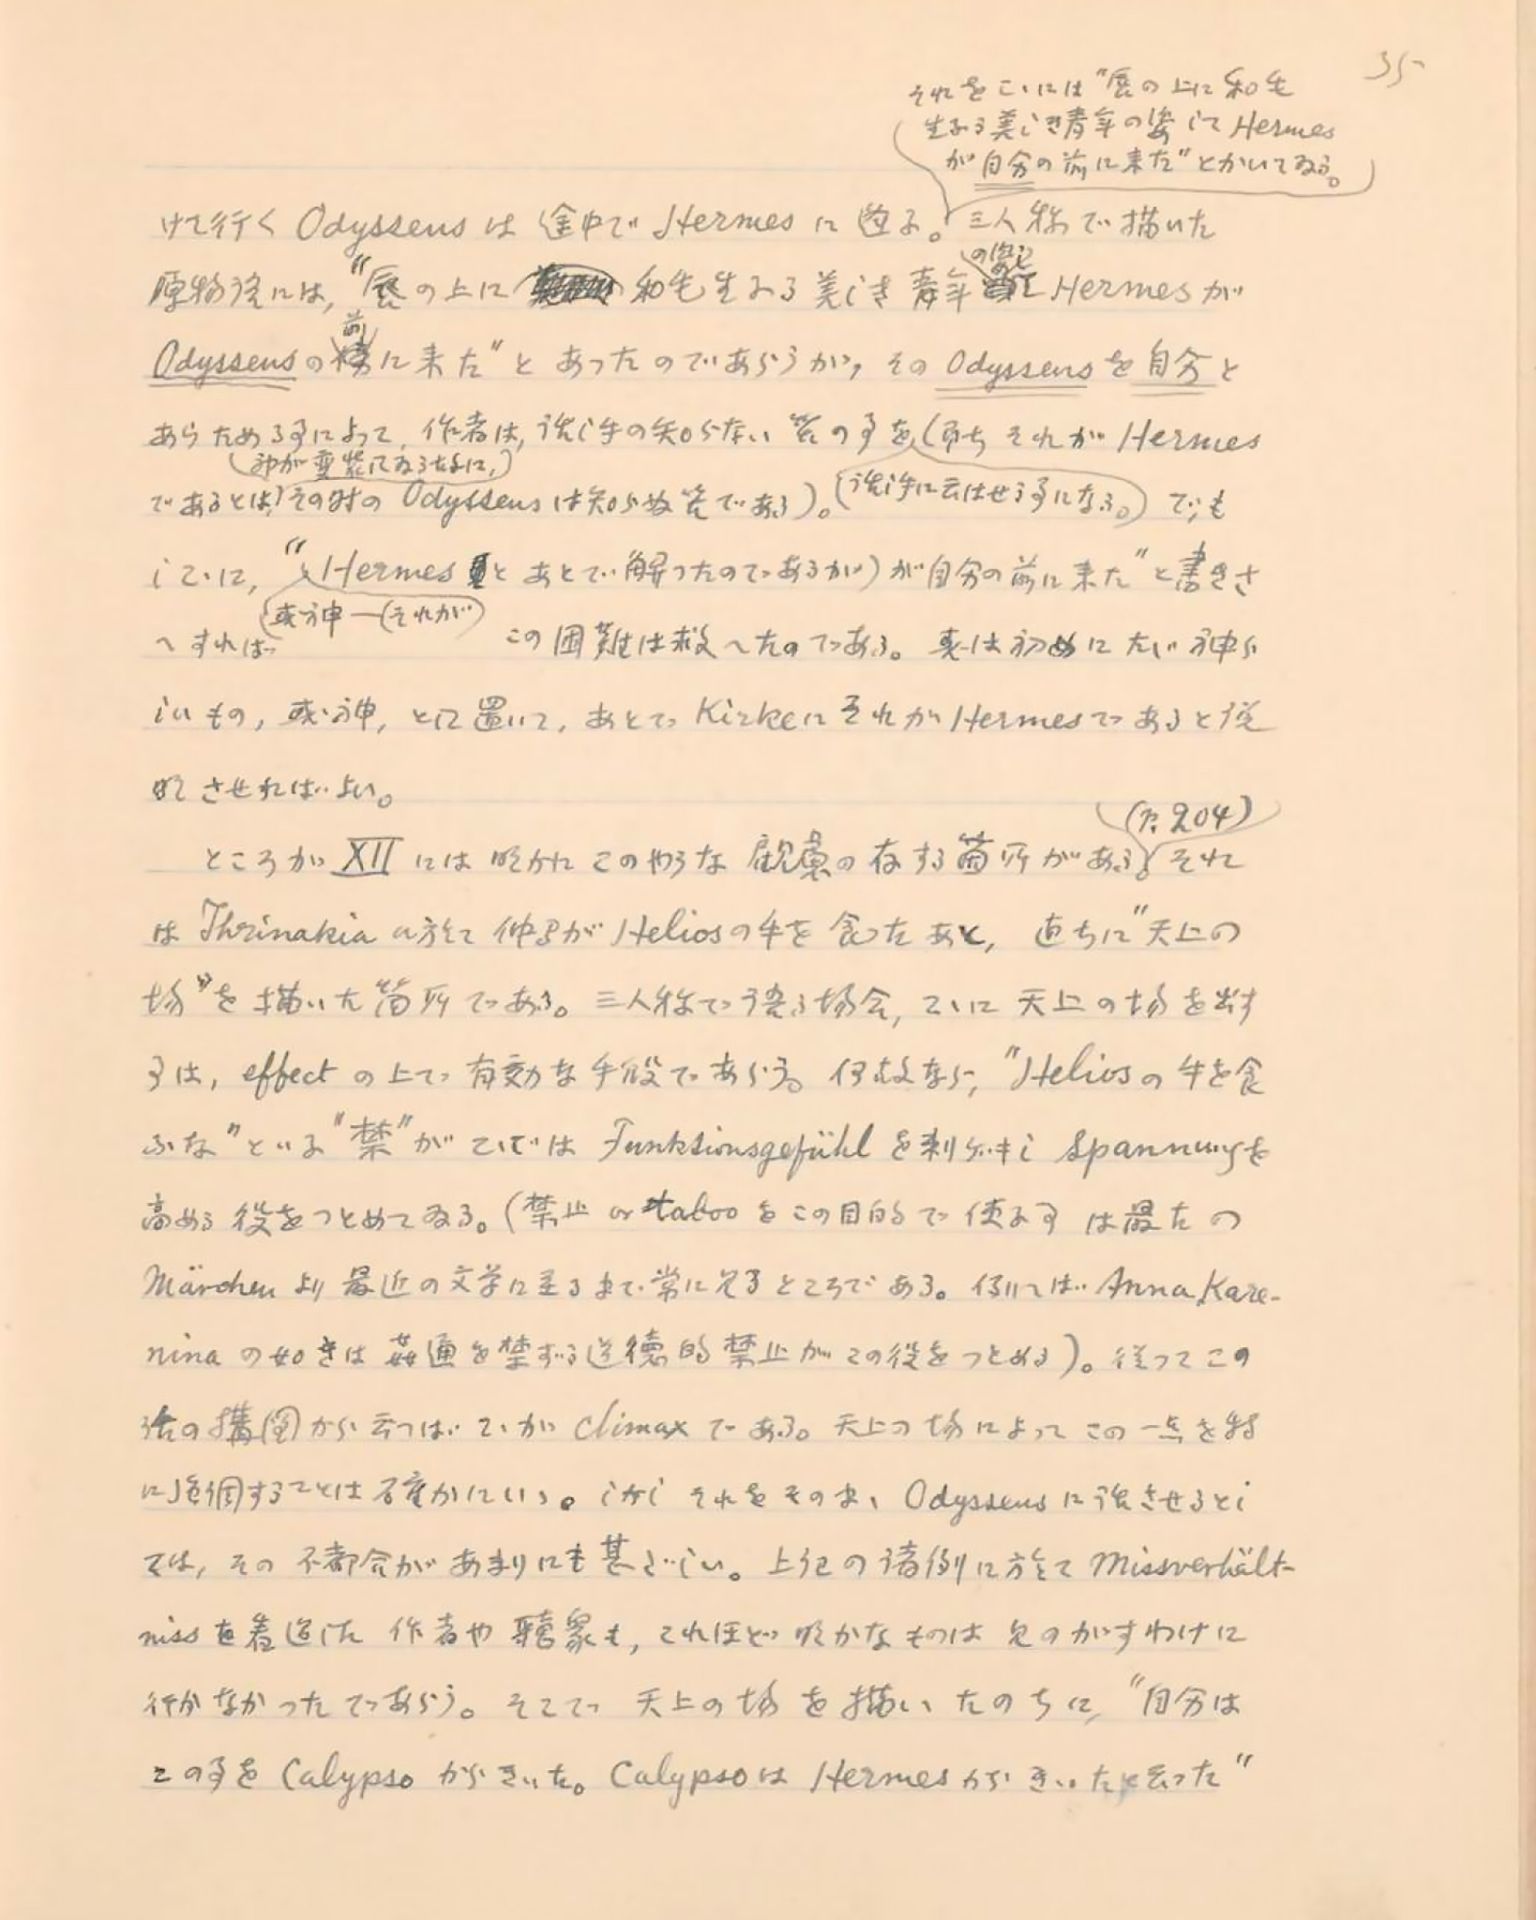 35
それをこゝには"唇の上に和毛
生ふる美しき青年の姿してHermes
が自分の前に来た"とかいてゐる。
けて行く Odysseus は 途中で Hermes に 遇ふ。三人称で描いた
原物語には, "唇の上に 和毛生ふる美しき 青年の姿して Hermes が
Odysseus の前に来た" と あったのであらうが, その Odysseus を 自分と
あらためる事によって, 作者は, 話し手の知らない筈の事を (即ち それが Hermes
(神が変装してゐる故に,)
であるとは, その時の Odysseus は知らぬ筈である)。(話し手に云はせる事になる。) でも
しこゝに, "Hermes と あとで解ったのであるが) が自分の前に来た" と書きさ
或神―(それが
へすれば この困難は救へたのである。或は初めに たゞ神ら
しいもの, 或神, として置いて, あとで Kirke に それが Hermes であると説
明させればよい。
(p. 204)
ところが XII には 明かに このやうな 顧慮の存する箇所がある。それ
は Thrinakia に於て 仲間が Helios の牛を 食った あと, 直ちに "天上の
場" を 描いた箇所である。三人称で語る場合, こゝに 天上の場を出す
事は, effect の上で 有効な手段であらう。何故なら, "Helios の牛を食
ふな" といふ "禁" が こゝでは Funktionsgefühl を刺ゲキし Spannung を
高める 役をつとめてゐる。(禁止 or taboo をこの目的で 使ふ事は最古の
Märchen より 最近の文学に至るまで常に見るところである。例へば Anna Kare-
nina の如きは 姦通を禁ずる道徳的禁止がこの役をつとめる)。従ってこの
話の構図から云へば こゝが climax である。天上の場によって この一点を特
に強調することは 確かにいゝ。しかし それをそのまゝ Odysseus に話させるとし
ては, その 不都合が あまりにも甚だしい。上記の諸例に於て Missverhält-
niss を看過した 作者や 聴衆も, これほど 明かなものは 見のがすわけに
行かなかったであらう。そこで 天上の場 を 描いたのちに, "自分は
この事を Calypso からきいた。Calypso は Hermes からきいたと云った"